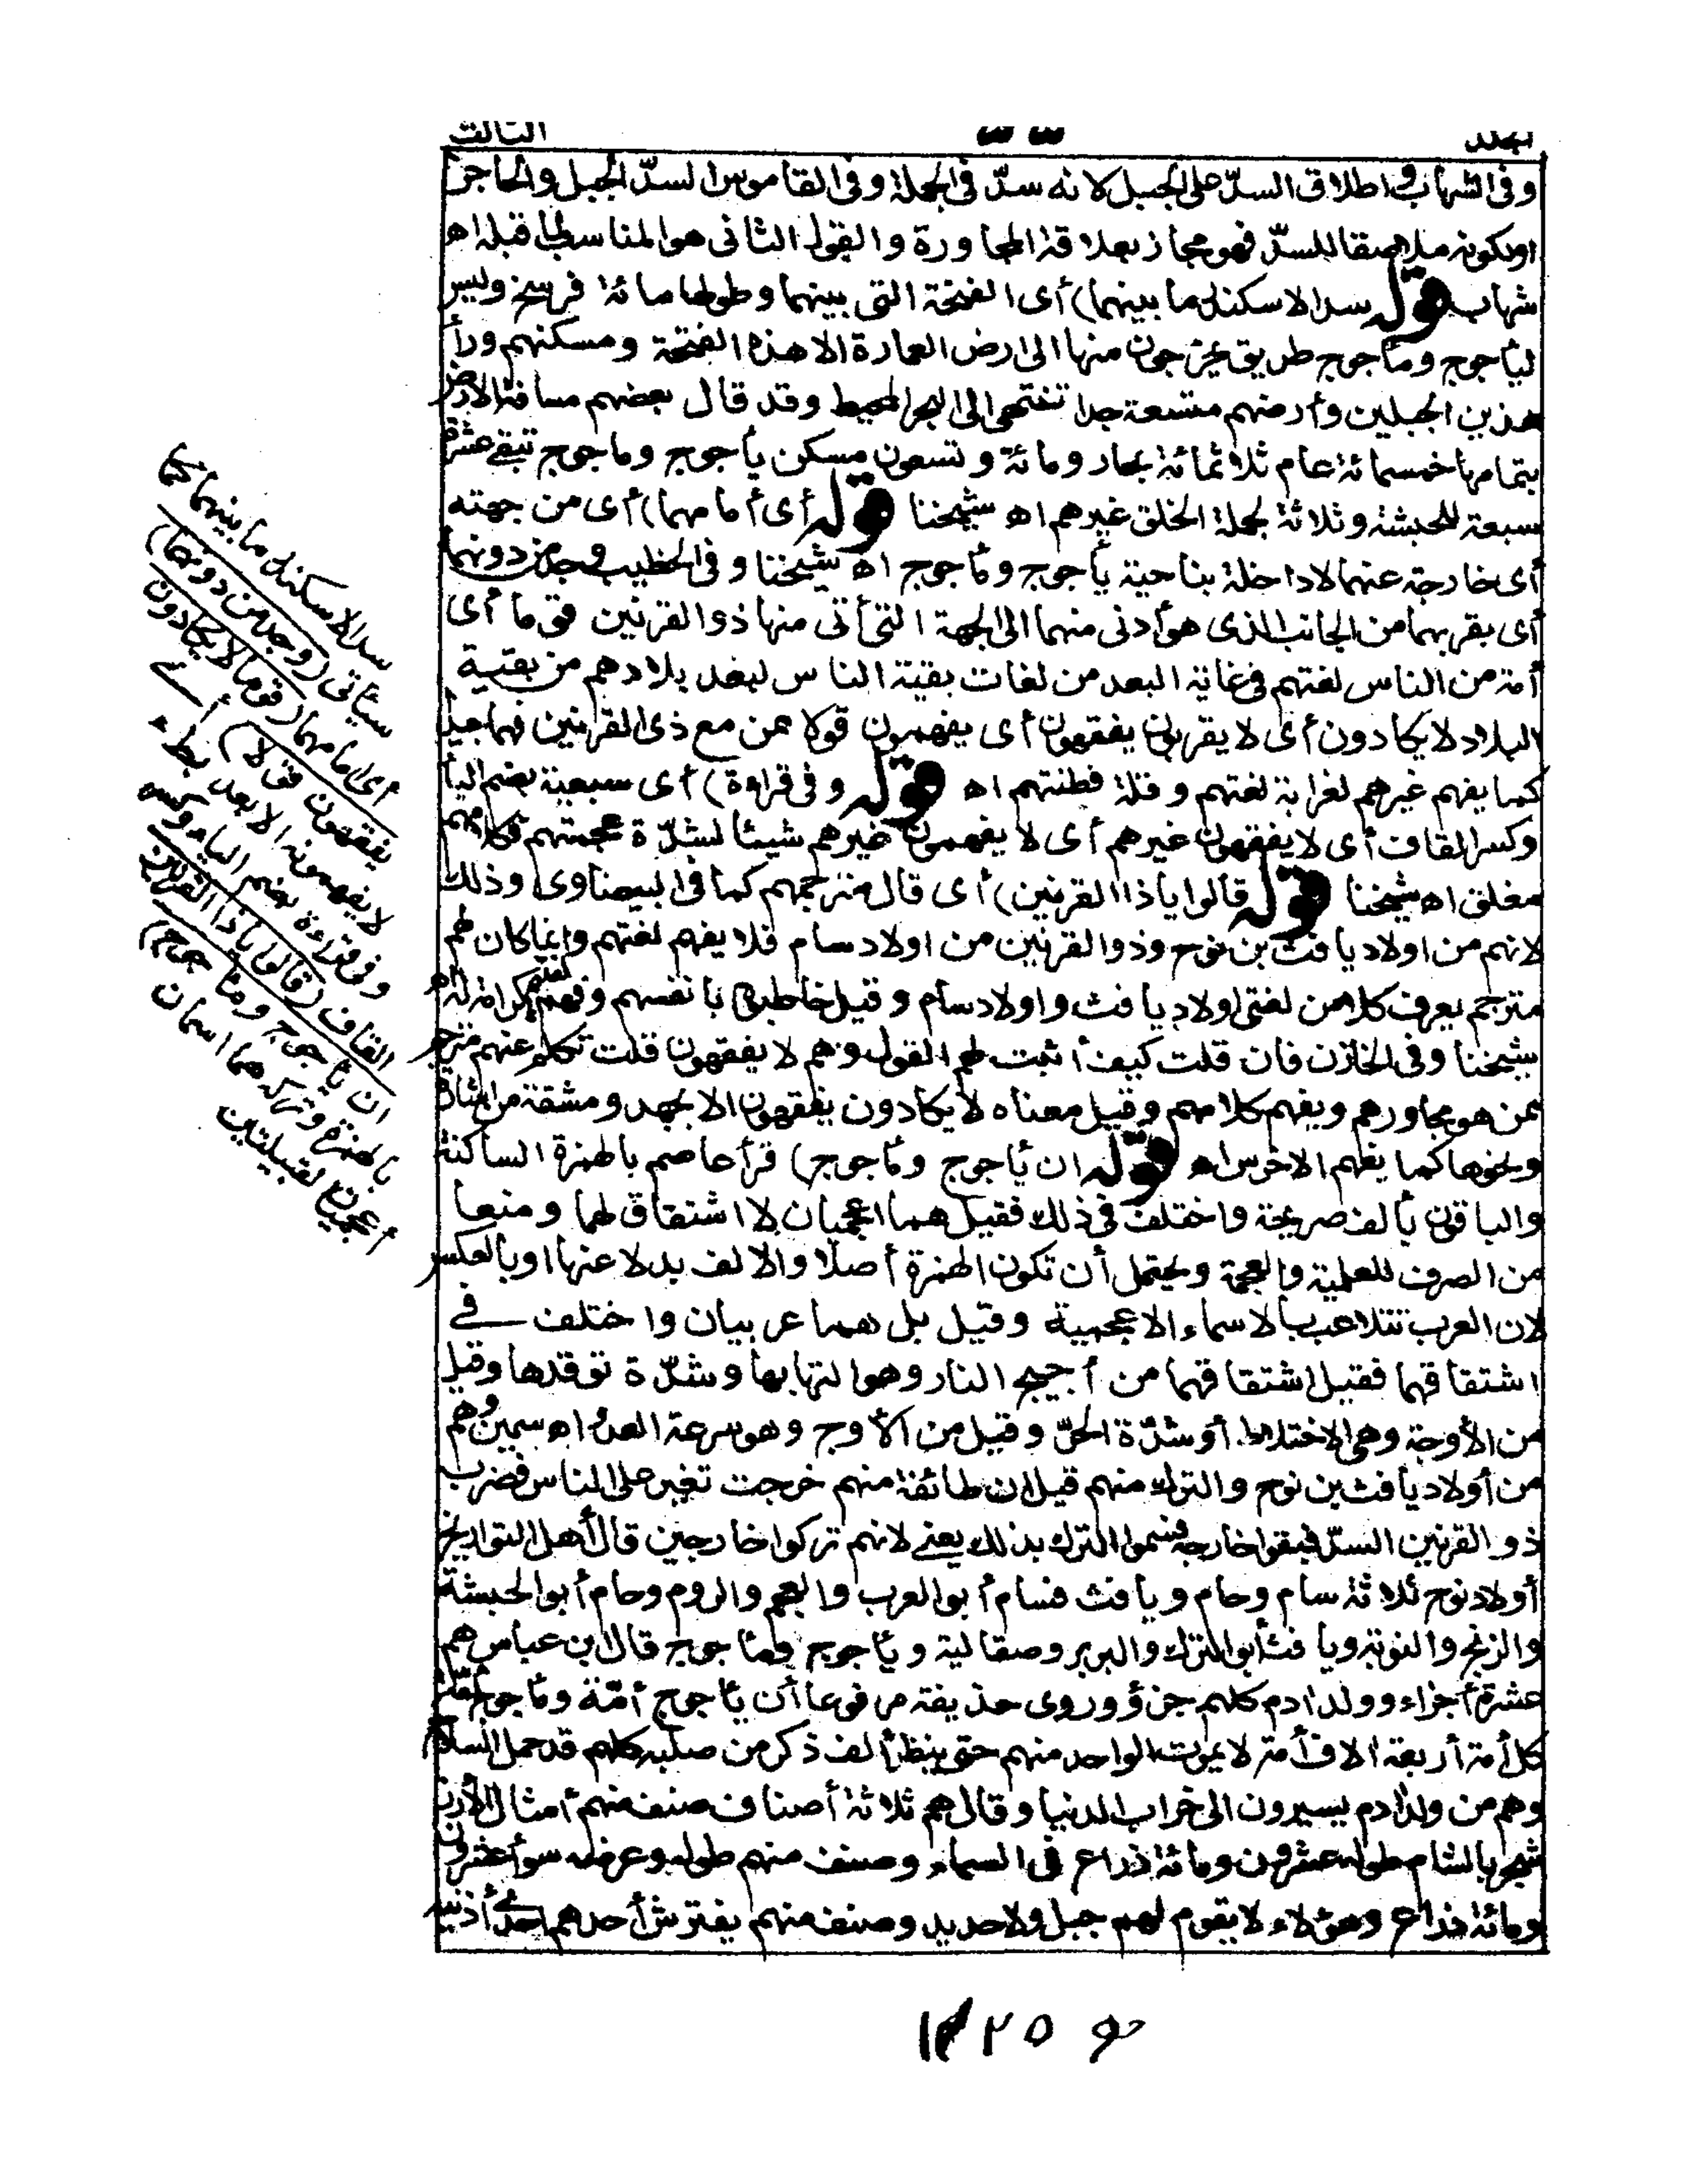 المجلد ٣٣ الثالث
وفى الشهاب و اطلاق السدّ على الجبل لانه سدّ فى الجملة وفى القاموس السدّ الجبل والحاجز
اولكونه ملاصقا للسدّ فهو مجاز بعلاقة المجاورة والقول الثانى هو المناسب لما قبله اه
شهاب قوله سد الاسكندر ما بينهما) أى الفتحة التى بينهما وطولها مائة فرسخ وليس
ليأجوج ومأجوج طريق يخرجون منها الى ارض العمارة الا هذه الفتحة ومسكنهم ورأ
هذين الجبلين وأرضهم متسعة جدا تنتهى الى البحر المحيط وقد قال بعضهم مسافة الارض
بتمامها خمسمائة عام ثلاثمائة بحار ومائة وتسعون مسكن يأجوج ومأجوج تبقى عشرة
سبعة للحبشة وثلاثة لجملة الخلق غيرهم اه شيخنا قوله أى أمامهما) أى من جهته
أى خارجة عنهما لا داخلة بناحية يأجوج ومأجوج اه شيخنا وفى الخطيب وجد من دونهما
أى بقربهما من الجانب الذى هو أدنى منهما الى الجهة التى أتى منها ذو القرنين قوما أى
أمة من الناس لغتهم فى غاية البعد من لغات بقية الناس لبعد بلادهم من بقية
البلاد لا يكادون أى لا يقربون يفقهون أى يفهمون قولا ممن مع ذى القرنين فهما جيدا
كما يفهم غيرهم لغرابة لغتهم وقلة فطنتهم اه قوله وفى قراءة) أى سبعية بضم اليأ
وكسر القاف أى لا يفقهون غيرهم أى لا يفهمون غيرهم شيئا لشدّة عجمتهم فكلامهم
مغلق اه شيخنا قوله قالوا ياذا القرنين) أى قال مترجمهم كما فى البيضاوى وذلك
لانهم من اولاد يافث بن نوح وذو القرنين من اولاد سام فلا يفهم لغتهم وانما كان لهم
مترجم يعرف كلا من لغتى اولاد يافث واولاد سام وقيل خاطبوه بانفسهم وفهم لغتهم كرامة له اه
شيخنا وفى الخازن فان قلت كيف أثبت لهم القول وهم لا يفقهون قلت تكلم عنهم مترجم
ممن هو مجاورهم ويفهم كلامهم وقيل معناه لا يكادون يفقهون الا بجهد ومشقة من اشارة
ونحوها كما يفهم الاخرس اه قوله ان يأجوج ومأجوج) قرأ عاصم بالهمزة الساكنة
والباقون بألف صريحة واختلف فى ذلك فقيل هما اعجميان لا اشتقاق لهما ومنعا
من الصرف للعلمية والعجمة ويحتمل أن تكون الهمزة أصلا والالف بدلا عنها اوبالعكس
لان العرب تتلاعب بالاسماء الاعجمية وقيل بل هما عربيان واختلف فى
اشتقاقهما فقيل اشتقاقهما من أجيج النار وهو التهابها وشدّة توقدها وقيل
من الأوجة وهى الاختلاط أو شدّة الحرّ وقيل من الأوج وهو سرعة العدو اه سمين وهم
من أولاد يافث بن نوح والترك منهم قيل ان طائفة منهم خرجت تغير على الناس فضرب
ذو القرنين السدّ فبقوا خارجه فسموا الترك بذلك يعنى لانهم تركوا خارجين قال أهل التواريخ
أولاد نوح ثلاثة سام وحام ويافث فسام أبو العرب والعجم والروم وحام أبو الحبشة
والزنج والنوبة ويافث أبو الترك والبربر وصقالبة ويأجوج ومأجوج قال ابن عباس هم
عشرة أجزاء وولد ادم كلهم جزؤ وروى حذيفة مرفوعا أن يأجوج أمّة ومأجوج أمّة
كل أمة أربعة الاف أمة لا يموت الواحد منهم حتى ينظر ألف ذكر من صلبه كلهم قد حمل السلاح
وهم من ولد ادم يسيرون الى خراب الدنيا وقال هم ثلاثة أصناف صنف منهم أمثال الأرز
شجر بالشام طوله عشرون ومائة ذراع فى السماء وصنف منهم طوله وعرضه سوأ عشرون
ومائة ذراع وهؤلاء لا يقوم لهم جبل ولا حديد وصنف منهم يفترش أحدهم احدى أذنيه
سد الاسكندر ما بينهما كما
سيأتى (وجد من دونهما)
أى أمامهما (قوما لا يكادون
يفقهون قولا) أى
لا يفهمونه الا بعد بطء
وفى قراءة بضم الياء وكسر
القاف (قالوا ياذا القرنين
ان يأجوج ومأجوج)
بالهمزة وتركه هما اسمان
أعجميان لقبيلتين